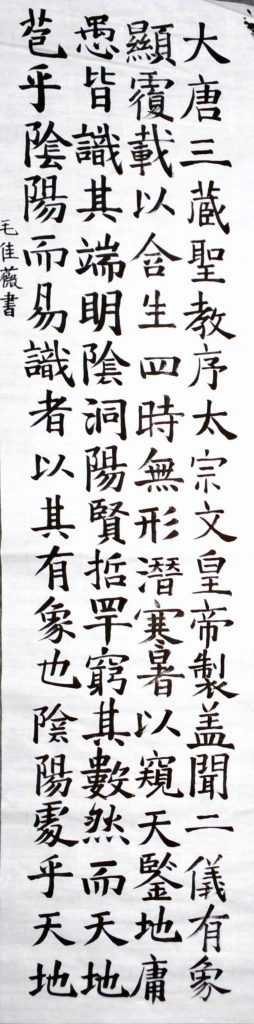 大唐三蔵聖教序太宗文皇帝製盖聞二儀有象
顯覆載以含生四時無形潛寒暑以窺天鑒地庸
愚皆識其端明陰洞陽賢哲罕窮其數然而天地
苞乎陰陽而易識者以其有象也陰陽處乎天地
毛佳薇書